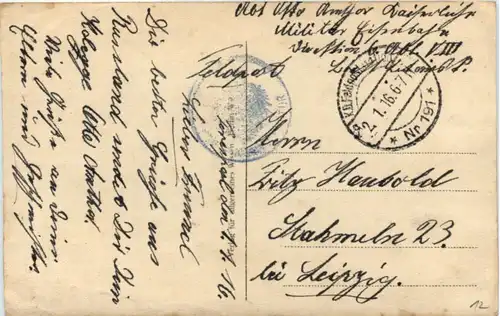 Abs Otto Amthor Kaiserliche
Militär Eisenbahn
Direktion 6 Abt. VIII
Feldpost
K.D. Feldpost
2.1.16. 6-7
* Nr 791 *
Herrn
Fritz Haubold
Stahmeln 23.
bei Leipzig.
den 2/1 16.
Lieber Freund
Die besten Grüße aus
Russland sendet Dir Dein
Kollege Otto Amthor
Viele Grüße an Deine
Eltern und Geschwister.
12